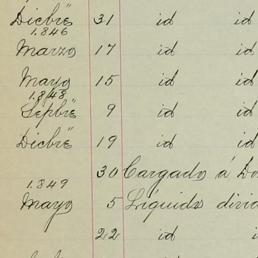 Dicbre 31 id id
1846
Marzo 17 id id
Mayo 15 id id
1848
Sepbre 9 id id
Dicbre 19 id id
30 Cargado á
1849
Mayo 5 Líquido
22 id